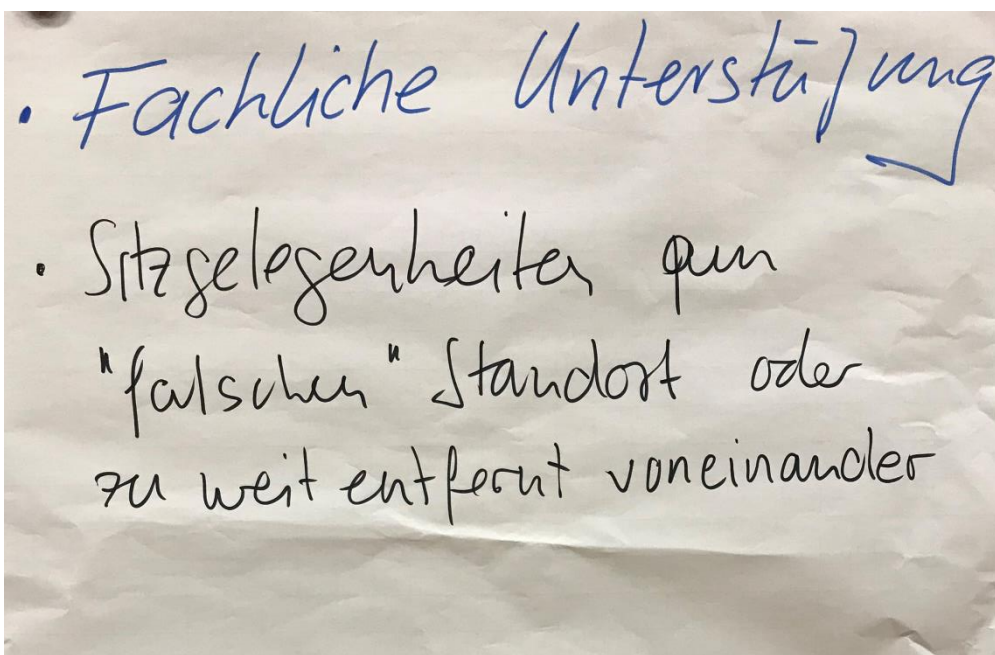 • Fachliche Unterstützung
• Sitzgelegenheiten am
"falschen" Standort oder
zu weit entfernt voneinander